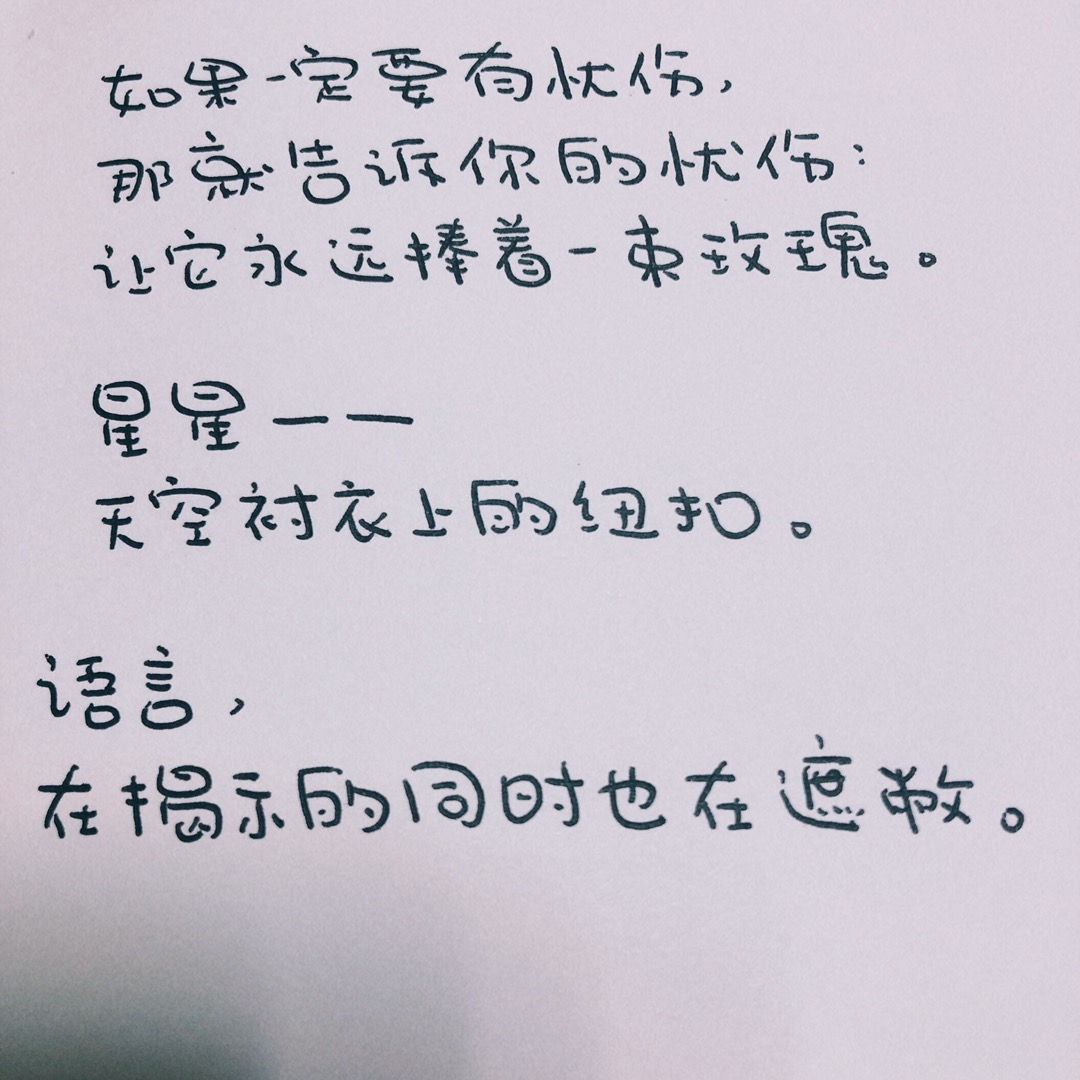 如果一定要有忧伤，
那就告诉你的忧伤：
让它永远捧着一束玫瑰。
星星——
天空衬衣上的纽扣。
语言，
在揭示的同时也在遮蔽。